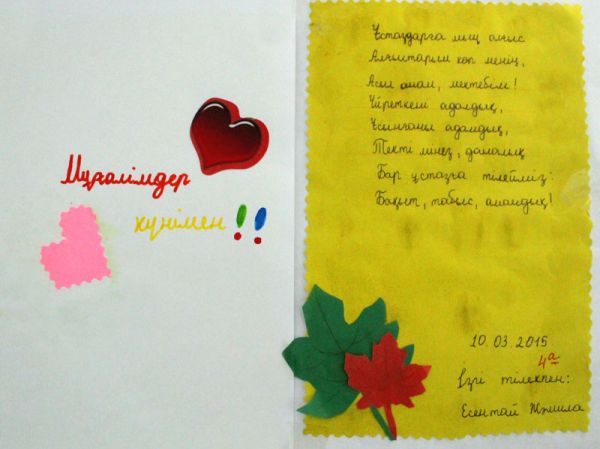 Мұғалімдер
күнімен!!
Ұстаздарға мың алғыс
Алғыстарым көп менің,
Асыл анам, мектебім!
Үйреткені адалдық,
Ұсынғаны адамдық,
Текті мінез, даналық
Бар ұстазға тілейміз:
Бақыт, табыс, амандық!
10.03.2015
4а
Ізгі тілекпен:
Есентай